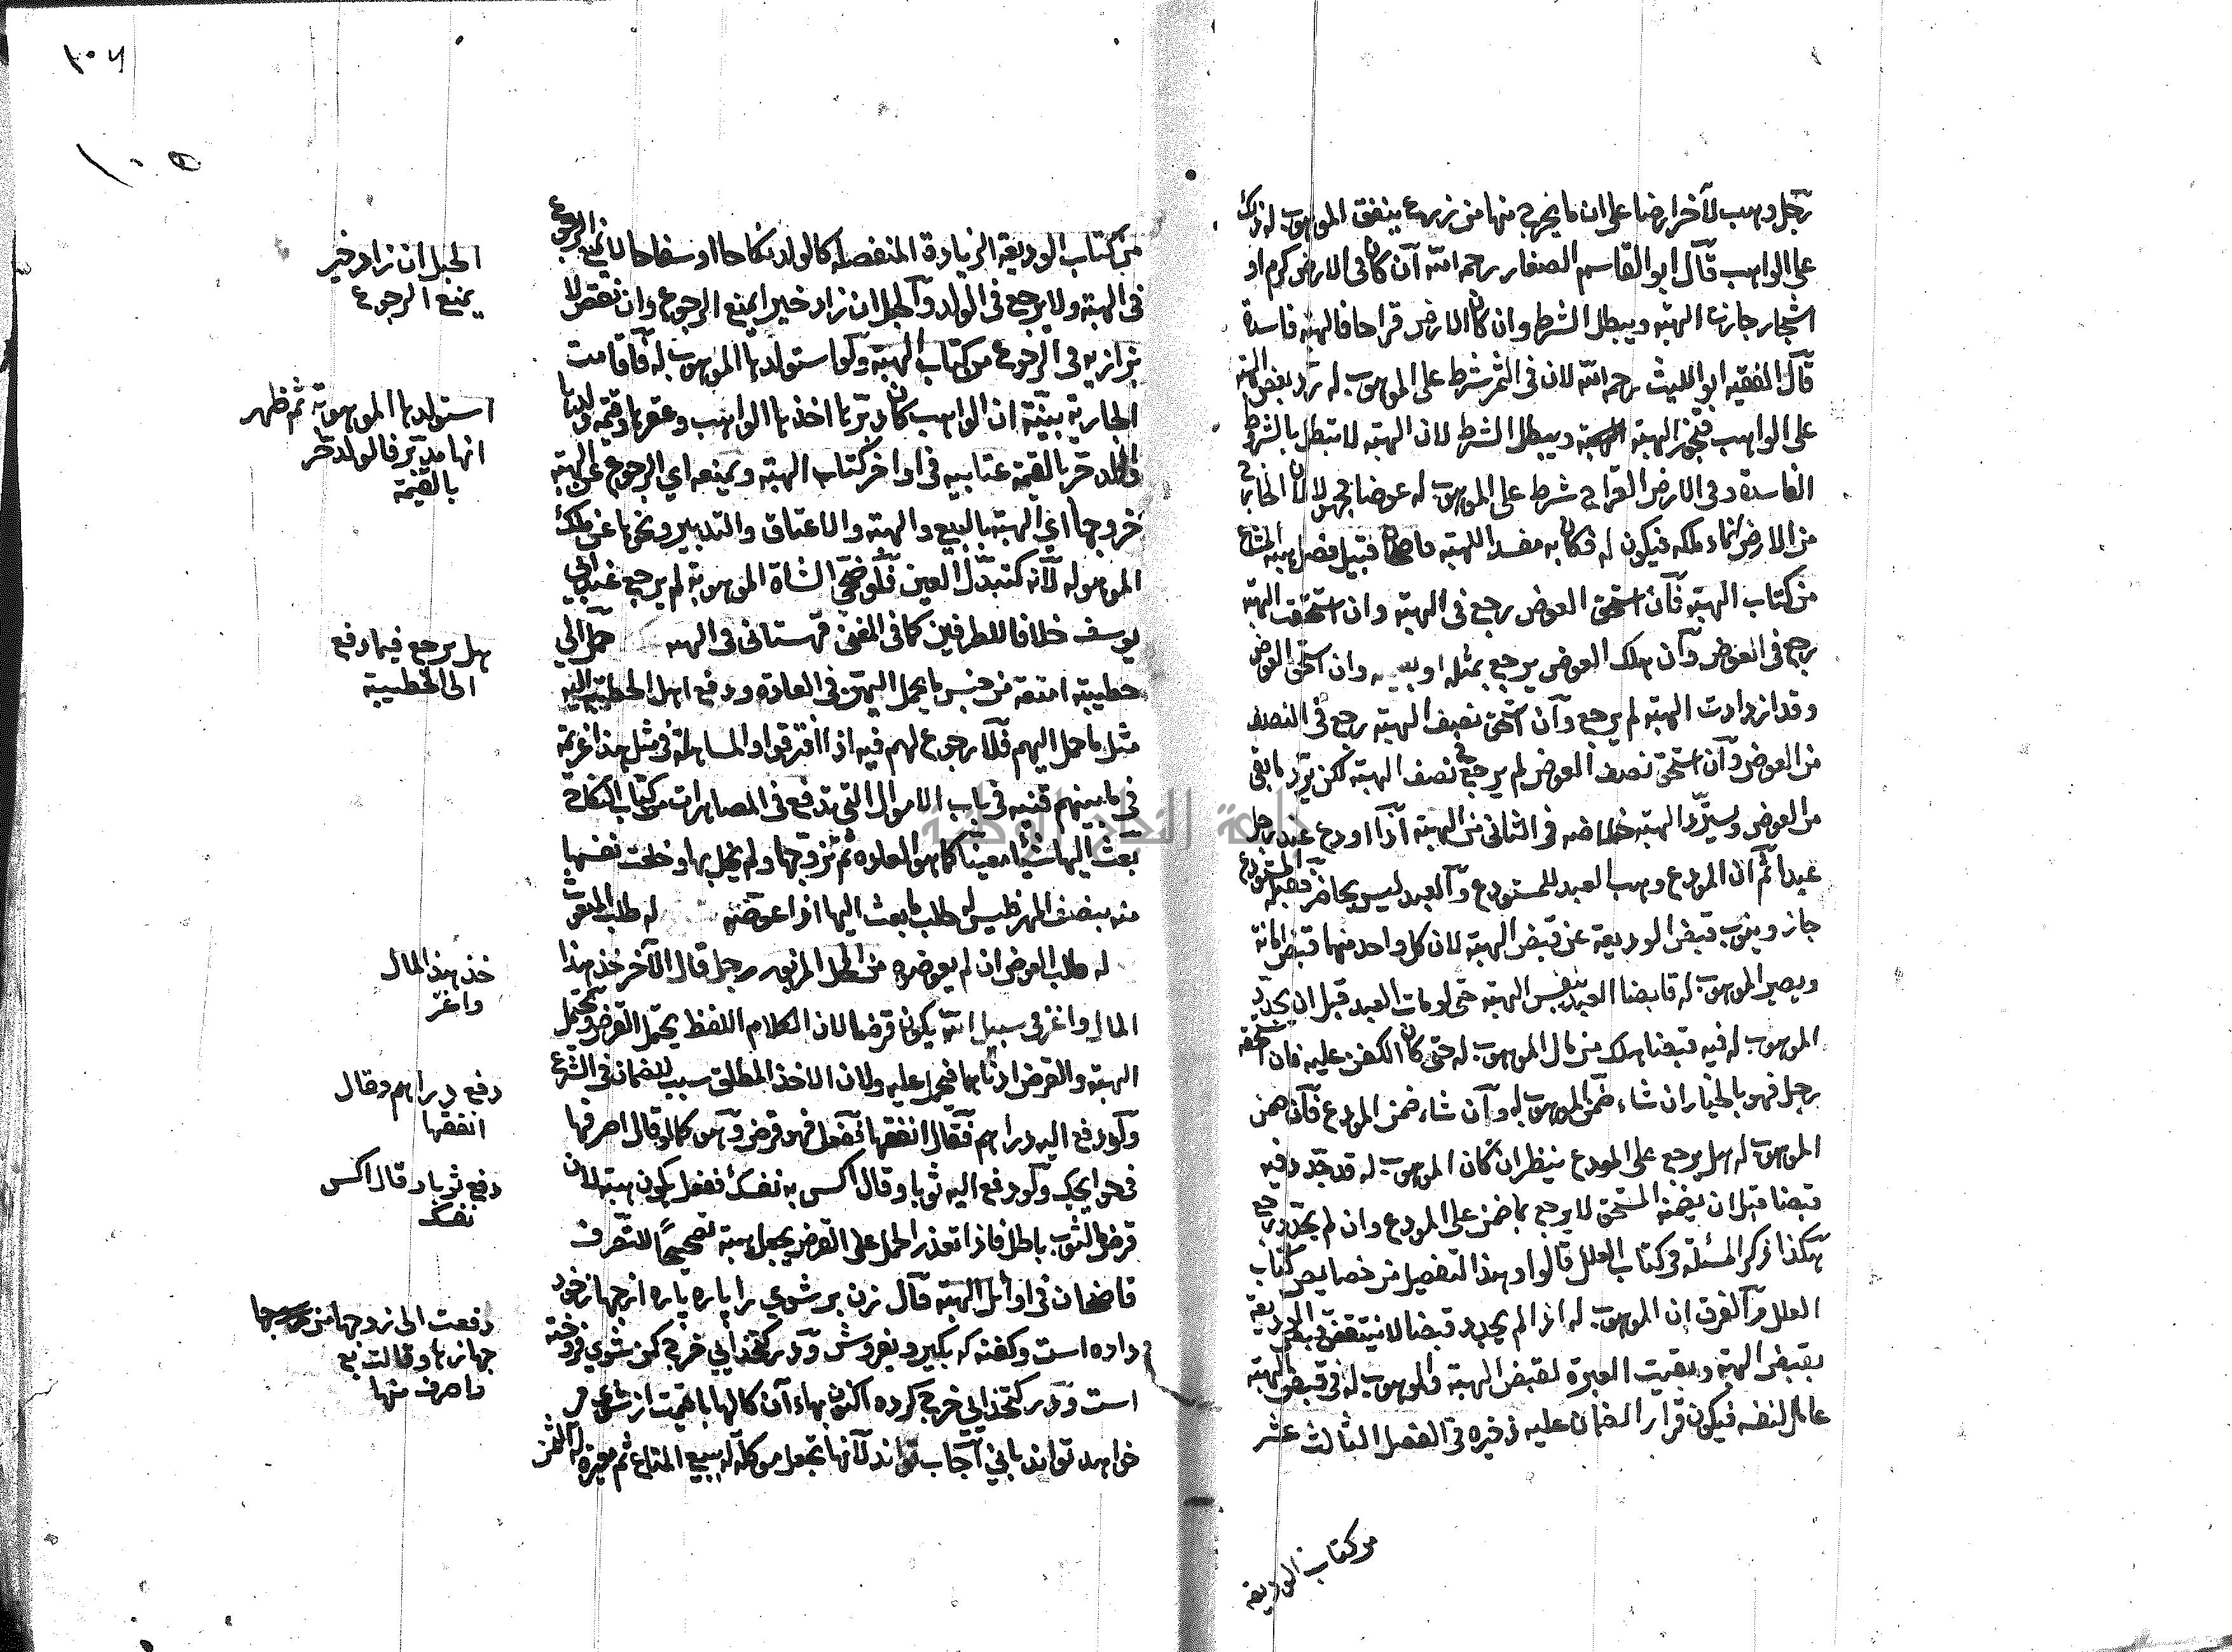 رجل وهب لآخر ارضا على ان ما يخرج منها من زرع ينفق الموهوب له ذلك
على الواهب قال ابو القاسم الصفار رحمه الله ان كان فى الارض كرم او
اشجار جازت الهبة ويبطل الشرط وان كان الارض قراحا فالهبة فاسدة
قال الفقيه ابو الليث رحمه الله لان فى الثمر شرط على الموهوب له رد بعض الهبة
على الواهب فتجوز الهبة ويبطل الشرط لان الهبة لا تبطل بالشروط
الفاسدة وفى الارض القراح شرط على الموهوب له عوضا مجهولا لان الخارج
من الارض نماء ملكه فيكون له فكان به مفسدا للهبة قاضيخان قبيل فصل هبة المشاع
من كتاب الهبة فان استحق العوض رجع فى الهبة وان استحقت الهبة
رجع فى العوض وان هلك العوض يرجع بمثله او بقيمته وان استحق العوض
وقد ازدادت الهبة لم يرجع وان استحق نصف الهبة رجع فى النصف
من العوض وان استحق نصف العوض لم يرجع فى نصف الهبة لكن يرد ما بقى
من العوض ويسترد الهبة خلاصه فى الثانى من الهبة اذا اودع عند رجل
عبدا ثم ان المودع وهب العبد للمستودع والعبد ليس بحاضر فقبل المستودع
جاز وينوب قبض الوديعة عن قبض الهبة لان كل واحد منهما قبض امانة
ويصير الموهوب له قابضا العبد بنفس الهبة حتى لو مات العبد قبل ان يجدد
الموهوب له فيه قبضا هلك من مال الموهوب له حتى كان الكفن عليه فان استحقه
رجل فهو بالخيار ان شاء ضمن الموهوب له وان شاء ضمن المودع فان ضمن
الموهوب له هل يرجع على المودع ينظر ان كان الموهوب له قد جدد فيه
قبضا قبل ان يضمنه المستحق لا يرجع بما ضمن على المودع وان لم يجدد يرجع
هكذا ذكر المسئلة فى كتاب العلل قالوا وهذا التفصيل من خصايص كتاب
العلل والفرق ان الموهوب له اذا لم يجدد قبضا لا ينتقض قبض الوديعة
بقبض الهبة وبقيت العبرة لقبض الهبة والموهوب له فى قبض الهبة
عامل لنفسه فيكون قرار الضمان عليه ذخيره فى الفصل الثالث عشر
من كتاب الوديعة
١٠٦
١٠٥
من كتاب الوديعة الزيادة المنفصلة كالولد نكاحا او سفاحا لا يمنع الرجوع
فى الهبة ولا يرجع فى الولد والحبل ان زاد خيرا يمنع الرجوع وان نقص لا
بزازيه فى الرجوع من كتاب الهبة ولو استولدها الموهوب له فاقامت
الجارية بينة ان الواهب كان دبرها اخذها الواهب وعقرها وقيمة ولدها
والولد حر بالقيمة عتابيه فى اواخر كتاب الهبة ويمنعه اي الرجوع عن الهبة
خروجها اي الهبة بالبيع والهبة والاعتاق والتدبير ونحوها عن ملك
الموهو له لانه كتبدل العين فلو ضحى الشاة الموهوبة لم يرجع عند ابي
يوسف خلافا للطرفين كما فى المغنى قهستانى فى الهبه حمل الي
خطيبته امتعة من جنس ما يحمل اليهن فى العادة ودفع اهل الخطيبة اليه
مثل ما حمل اليهم فلا رجوع لهم فيه اذا افترقوا والمساهلة فى مثل هذا غريمة
فى ما بينهم قنيه فى باب الاموال التى تدفع فى المصاهرات من كتاب النكاح
بعث اليها شيئا معينا كما هو العادة ثم تزوجها ولم يخل بها وخلعت نفسها
منه بنصف المهر فليس له طلب ما بعث اليها اذا عوضته له طلب المبعوث
له طلب العوض ان لم يعوضوه من المحل المزبور رجل قال الآخر خذ هذا
المال واغز فى سبيل الله يكون قرضا لان الكلام اللفظ يحتمل القرض ويحتمل
الهبة والقرض ادناهما فيحمل عليه ولان الاخذ المطلق سبب للضمان فى الشرع
ولو دفع اليه دراهم فقال انفقها ففعل فهو قرض وهو كما لو قال اصرفها
فى حوايجك ولو دفع اليه ثوبا وقال اكس به نفسك ففعل يكون هبة لان
قرض الثوب باطل فاذا تعذر الحمل على القرض يجعل هبة تصحيحا للتصرف
قاضيخان فى اوائل الهبة قال زن بر شوي را پاره پاره از جهاز خود
داده است وكفته كه بكير وبفروش ودر كتخدايي خرج كن شوي فروخته
است ودر كتخدايي خرج كرده اكنون بهاء آن كالها با قيمت از شوي مى
خواهد تواند يا نى اجاب تواند لانها تجعل موكلة له ببيع المتاع ثم معيرة له الثمن
الحبل ان زاد خير
يمنع الرجوع
استولدها الموهوبة ثم ظهر
انها مدبر فالولد حر
بالقيمة
هل يرجع فيما دفع
الى الخطيبة
خذ هذا المال
واغز
دفع دراهم وقال
انفقها
دفع ثوبا وقال اكس
نفسك
دفعت الى زوجها من
جهازها وقالت بع
واصرف منها
جامعة النجاح الوطنية